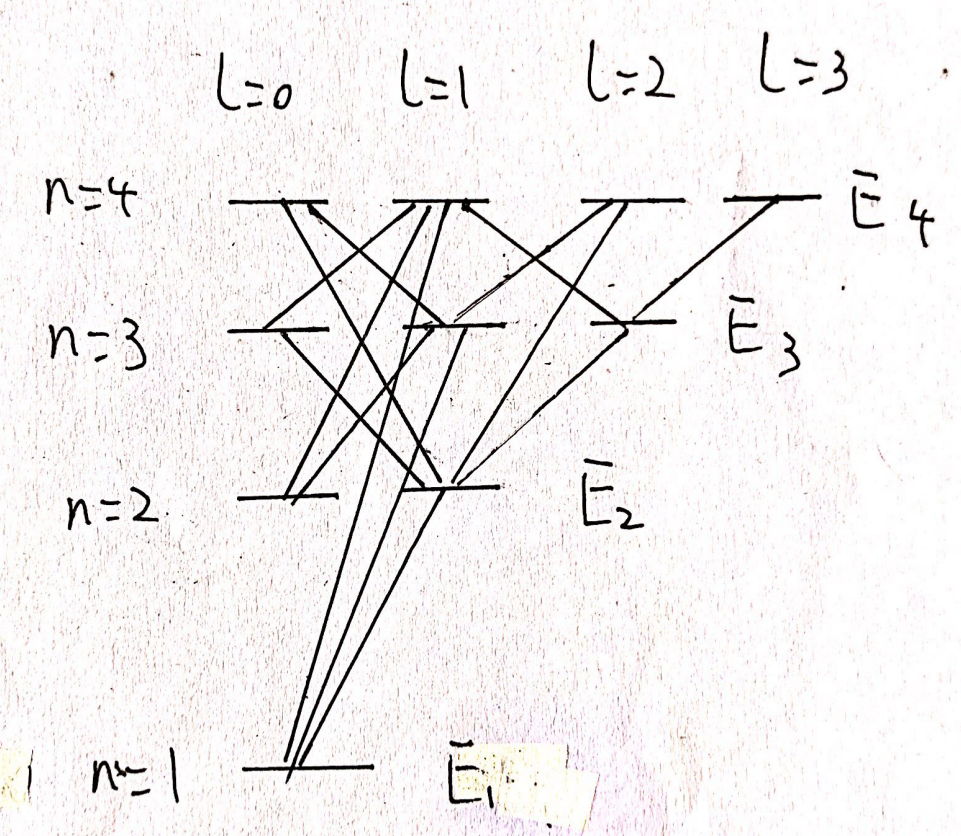 l=0 l=1 l=2 l=3
n=4 E4
n=3 E3
n=2 E2
n=1 E1